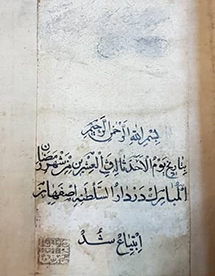 بسم الله الرحمن الرحيم
بتاريخ يوم الاحد ثالث والعشرين من شهر رمضان
المبارك در دار السلطنه اصفهان
ابتياع شد